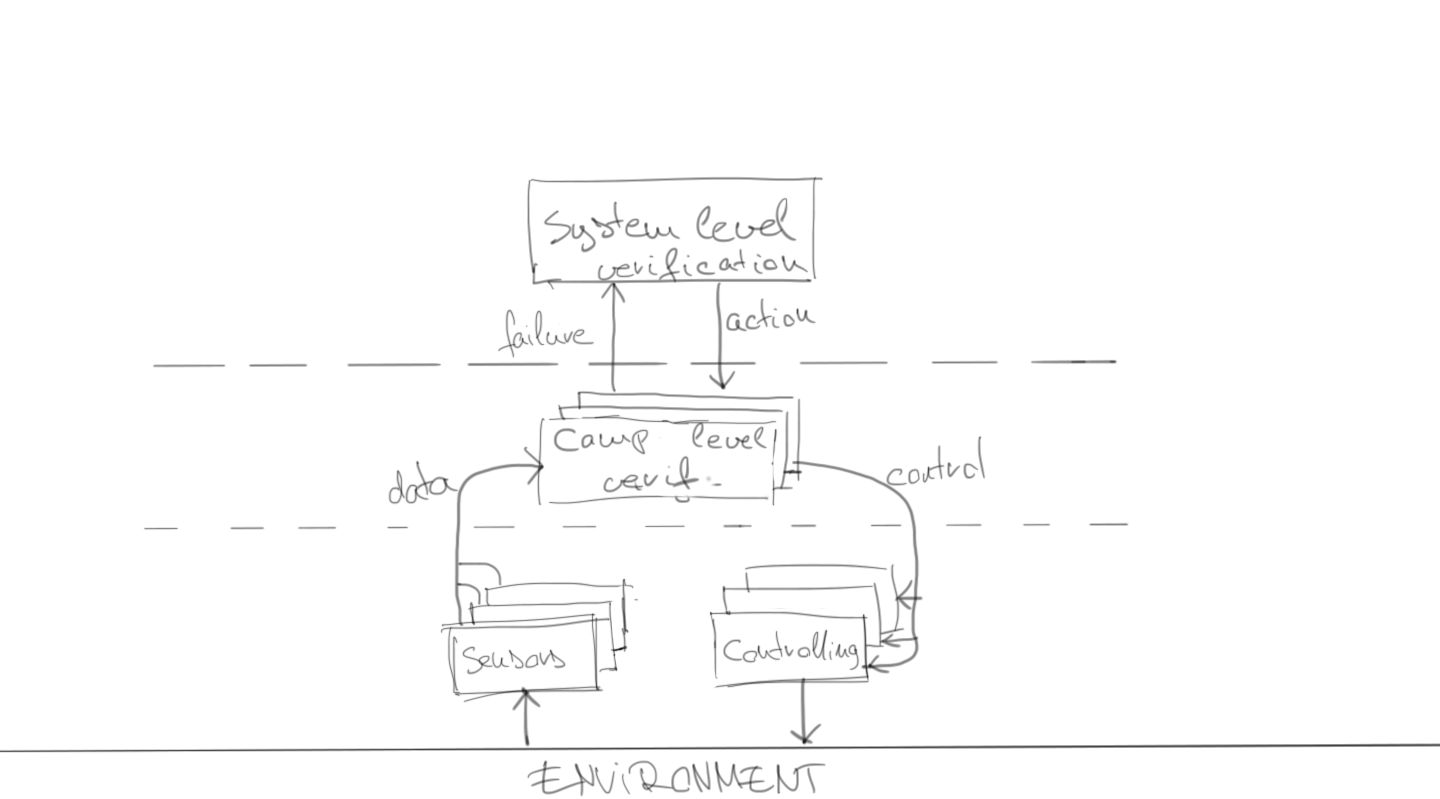 System level
verification
failure
action
Comp level
verif.
data
control
Sensors
Controlling
ENViRONMENT